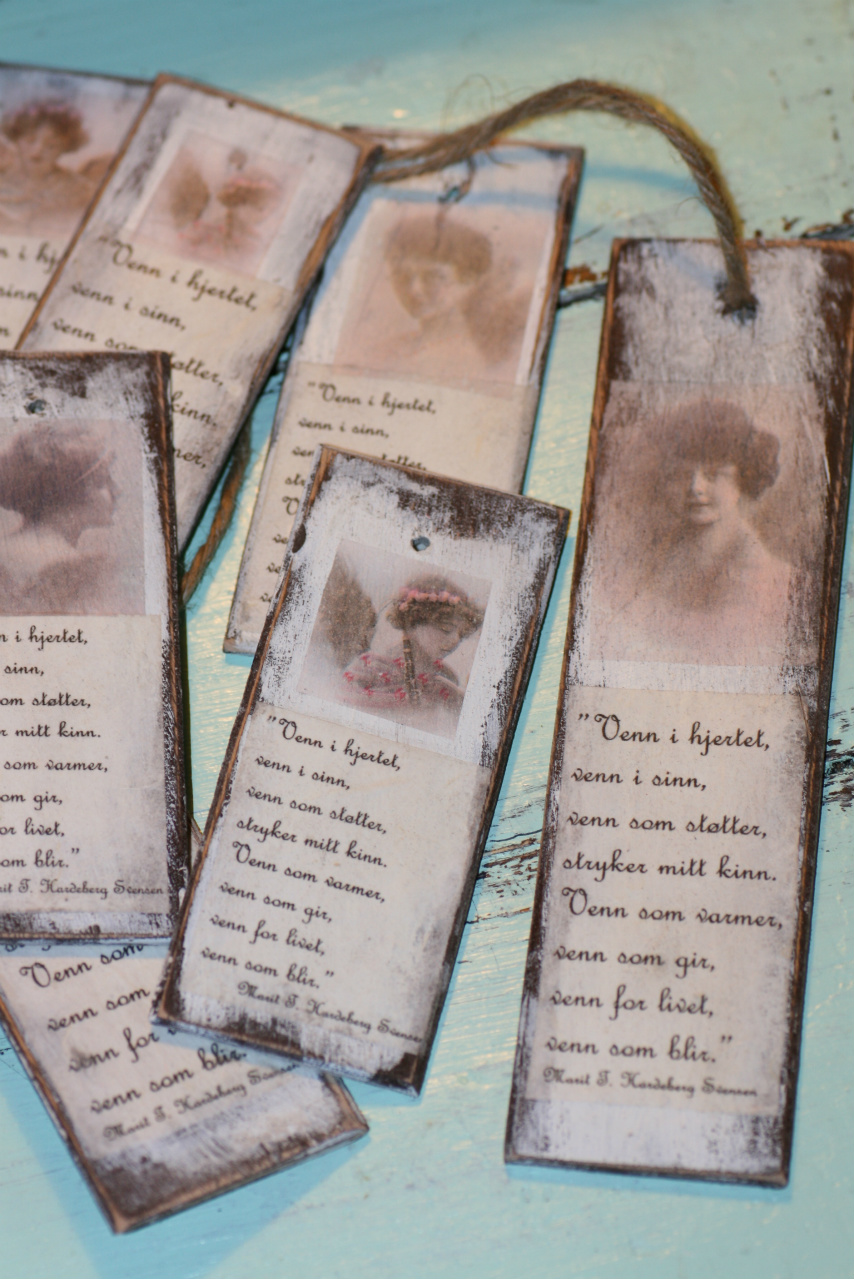 n i hj
sinn
"Venn i hjertet,
venn i sinn,
venn som støtter,
kinn.
mer,
"Venn i hjertet,
venn i sinn,
støtter,
n i hjertet,
sinn,
om støtter,
r mitt kinn.
som varmer,
om gir,
or livet,
om blir."
rit T. Hardeberg Svensen
"Venn i hjertet,
venn i sinn,
venn som støtter,
stryker mitt kinn.
Venn som varmer,
venn som gir,
venn for livet,
venn som blir."
Marit T. Hardeberg Svensen
"Venn i hjertet,
venn i sinn,
venn som støtter,
stryker mitt kinn.
Venn som varmer,
venn som gir,
venn for livet,
venn som blir."
Marit T. Hardeberg Svensen
Venn som
venn som
venn for
venn som blir."
Marit T. Hardeberg Svense